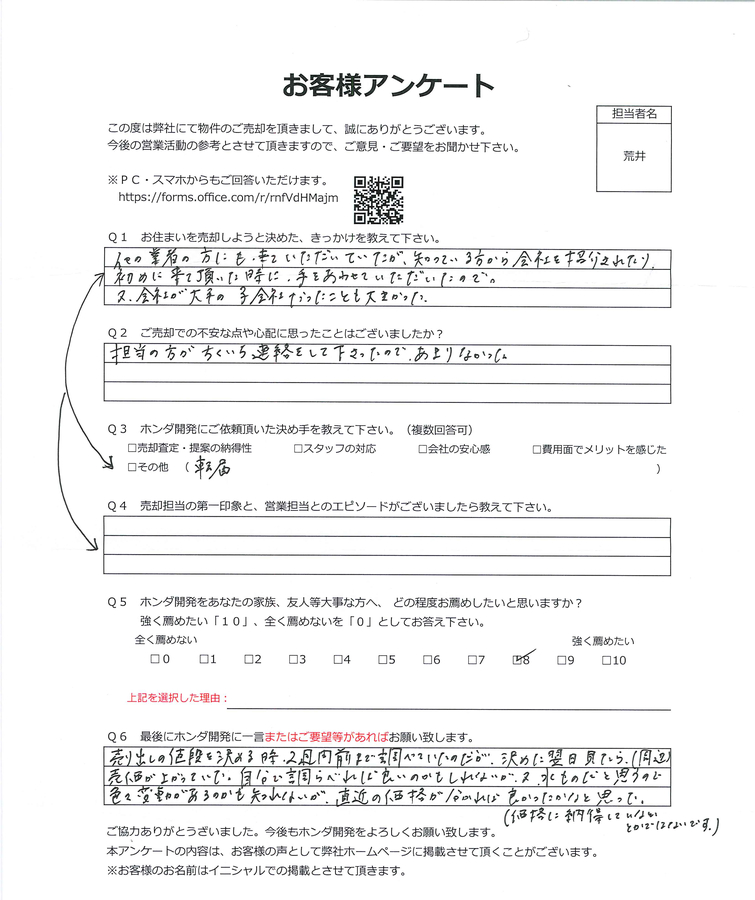 お客様アンケート
担当者名
荒井
この度は弊社にて物件のご売却を頂きまして、誠にありがとうございます。
今後の営業活動の参考とさせて頂きますので、ご意見・ご要望をお聞かせ下さい。
※ＰＣ・スマホからもご回答いただけます。
https://forms.office.com/r/rnfVdHMajm
Ｑ１　お住まいを売却しようと決めた、きっかけを教えて下さい。
他の業者の方にも来ていただいていたが、知っている方から会社を紹介されたり、
初めに来て頂いた時に、手をあわせていただいたので。
又、会社が大手の子会社だったことも大きかった。
Ｑ２　ご売却での不安な点や心配に思ったことはございましたか？
担当の方がちくいち連絡をして下さったので、あまりなかった
Ｑ３　ホンダ開発にご依頼頂いた決め手を教えて下さい。（複数回答可）
□売却査定・提案の納得性　□スタッフの対応　□会社の安心感　□費用面でメリットを感じた
□その他　（転届　）
Ｑ４　売却担当の第一印象と、営業担当とのエピソードがございましたら教えて下さい。
Ｑ５　ホンダ開発をあなたの家族、友人等大事な方へ、 どの程度お薦めしたいと思いますか？
強く薦めたい「１０」、全く薦めないを「０」としてお答え下さい。
全く薦めない　強く薦めたい
□0　□1　□2　□3　□4　□5　□6　□7　☑8　□9　□10
上記を選択した理由：
Ｑ６　最後にホンダ開発に一言またはご要望等があればお願い致します。
売り出しの値段を決める時、2週間前まで調べていたのだが、決めた翌日見たら、(周辺)
売価が上がっていた。自分で調らべれば良いのかもしれないが、又、水ものだと思うので
色々変動があるのかも知れないが、直近の価格が分かれば良かったかなと思った。
(価格に納得していない
とかではないです。)
ご協力ありがとうざいました。今後もホンダ開発をよろしくお願い致します。
本アンケートの内容は、お客様の声として弊社ホームページに掲載させて頂くことがございます。
※お客様のお名前はイニシャルでの掲載とさせて頂きます。